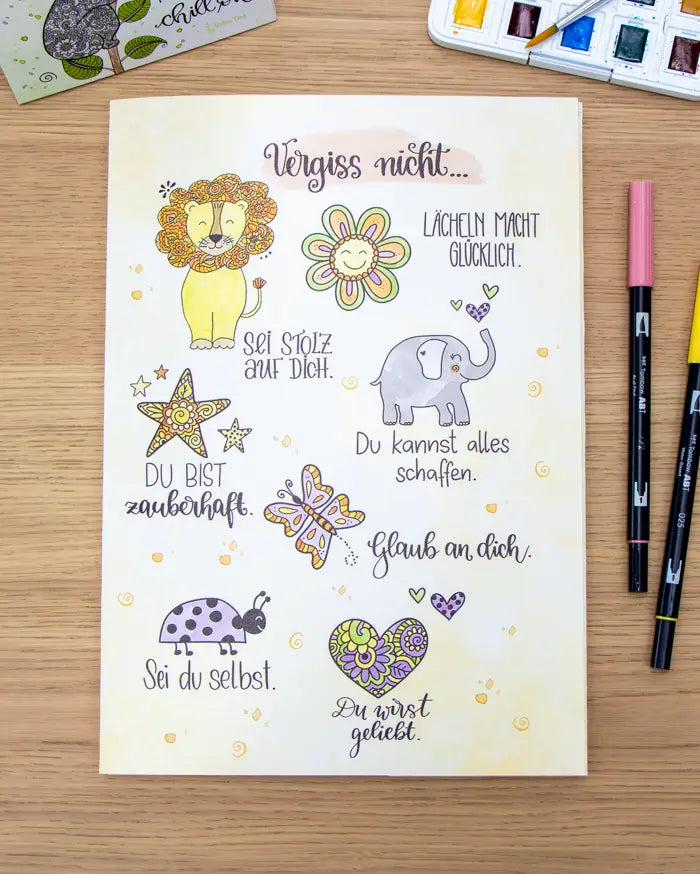 chill
Vergiss nicht...
LÄCHELN MACHT
GLÜCKLICH.
SEI STOLZ
AUF DICH.
Du kannst alles
schaffen.
DU BIST
zauberhaft.
Glaub an dich.
Sei du selbst.
Du wirst
geliebt.
Tombow ABT
Tombow ABT
025